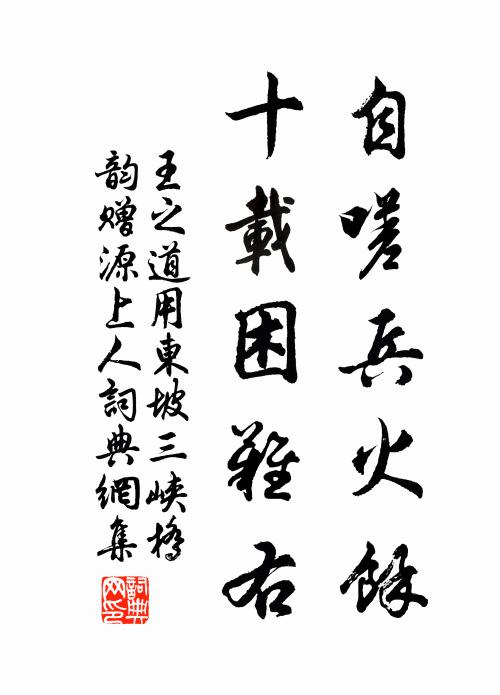 自嗟兵火餘
十載困難右
王之道用東坡三峽橋
韵贈源上人詞典網集
詞典
网印